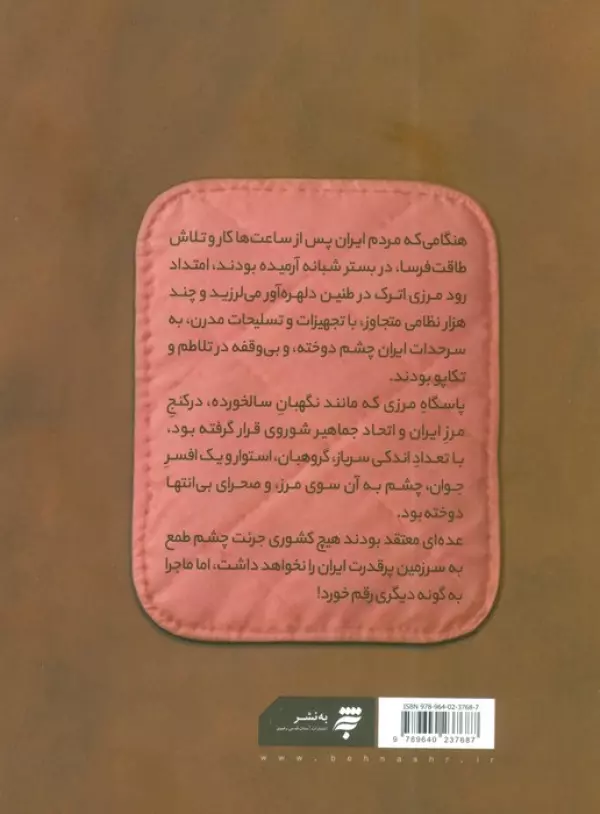 هنگامی‌که مردم ایران پس از ساعت‌ها کار و تلاش
طاقت‌فرسا، در بستر شبانه آرمیده بودند، امتداد
رود مرزی اترک در طنین دلهره‌آور می‌لرزید و چند
هزار نظامی متجاوز، با تجهیزات و تسلیحات مدرن، به
سرحدات ایران چشم دوخته، و بی‌وقفه در تلاطم و
تکاپو بودند.
پاسگاهِ مرزی که مانند نگهبانِ سالخورده، در کنجِ
مرزِ ایران و اتحاد جماهیر شوروی قرار گرفته بود،
با تعدادِ اندکی سرباز، گروهبان، استوار و یک افسرِ
جوان، چشم به آن سوی مرز، و صحرای بی‌انتها
دوخته بود.
عده‌ای معتقد بودند هیچ کشوری جرئت چشم طمع
به سرزمین پرقدرت ایران را نخواهد داشت، اما ماجرا
به گونه دیگری رقم خورد!
ISBN 978-964-02-3768-7
9 789640 237687
به‌نشر
انتشارات آستان قدس رضوی
www.behnashr.ir